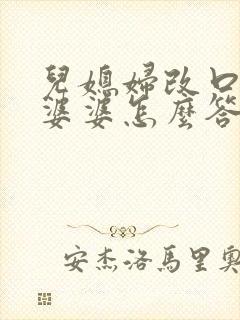 兒媳婦改口
婆婆怎麼答
安杰洛馬里奧